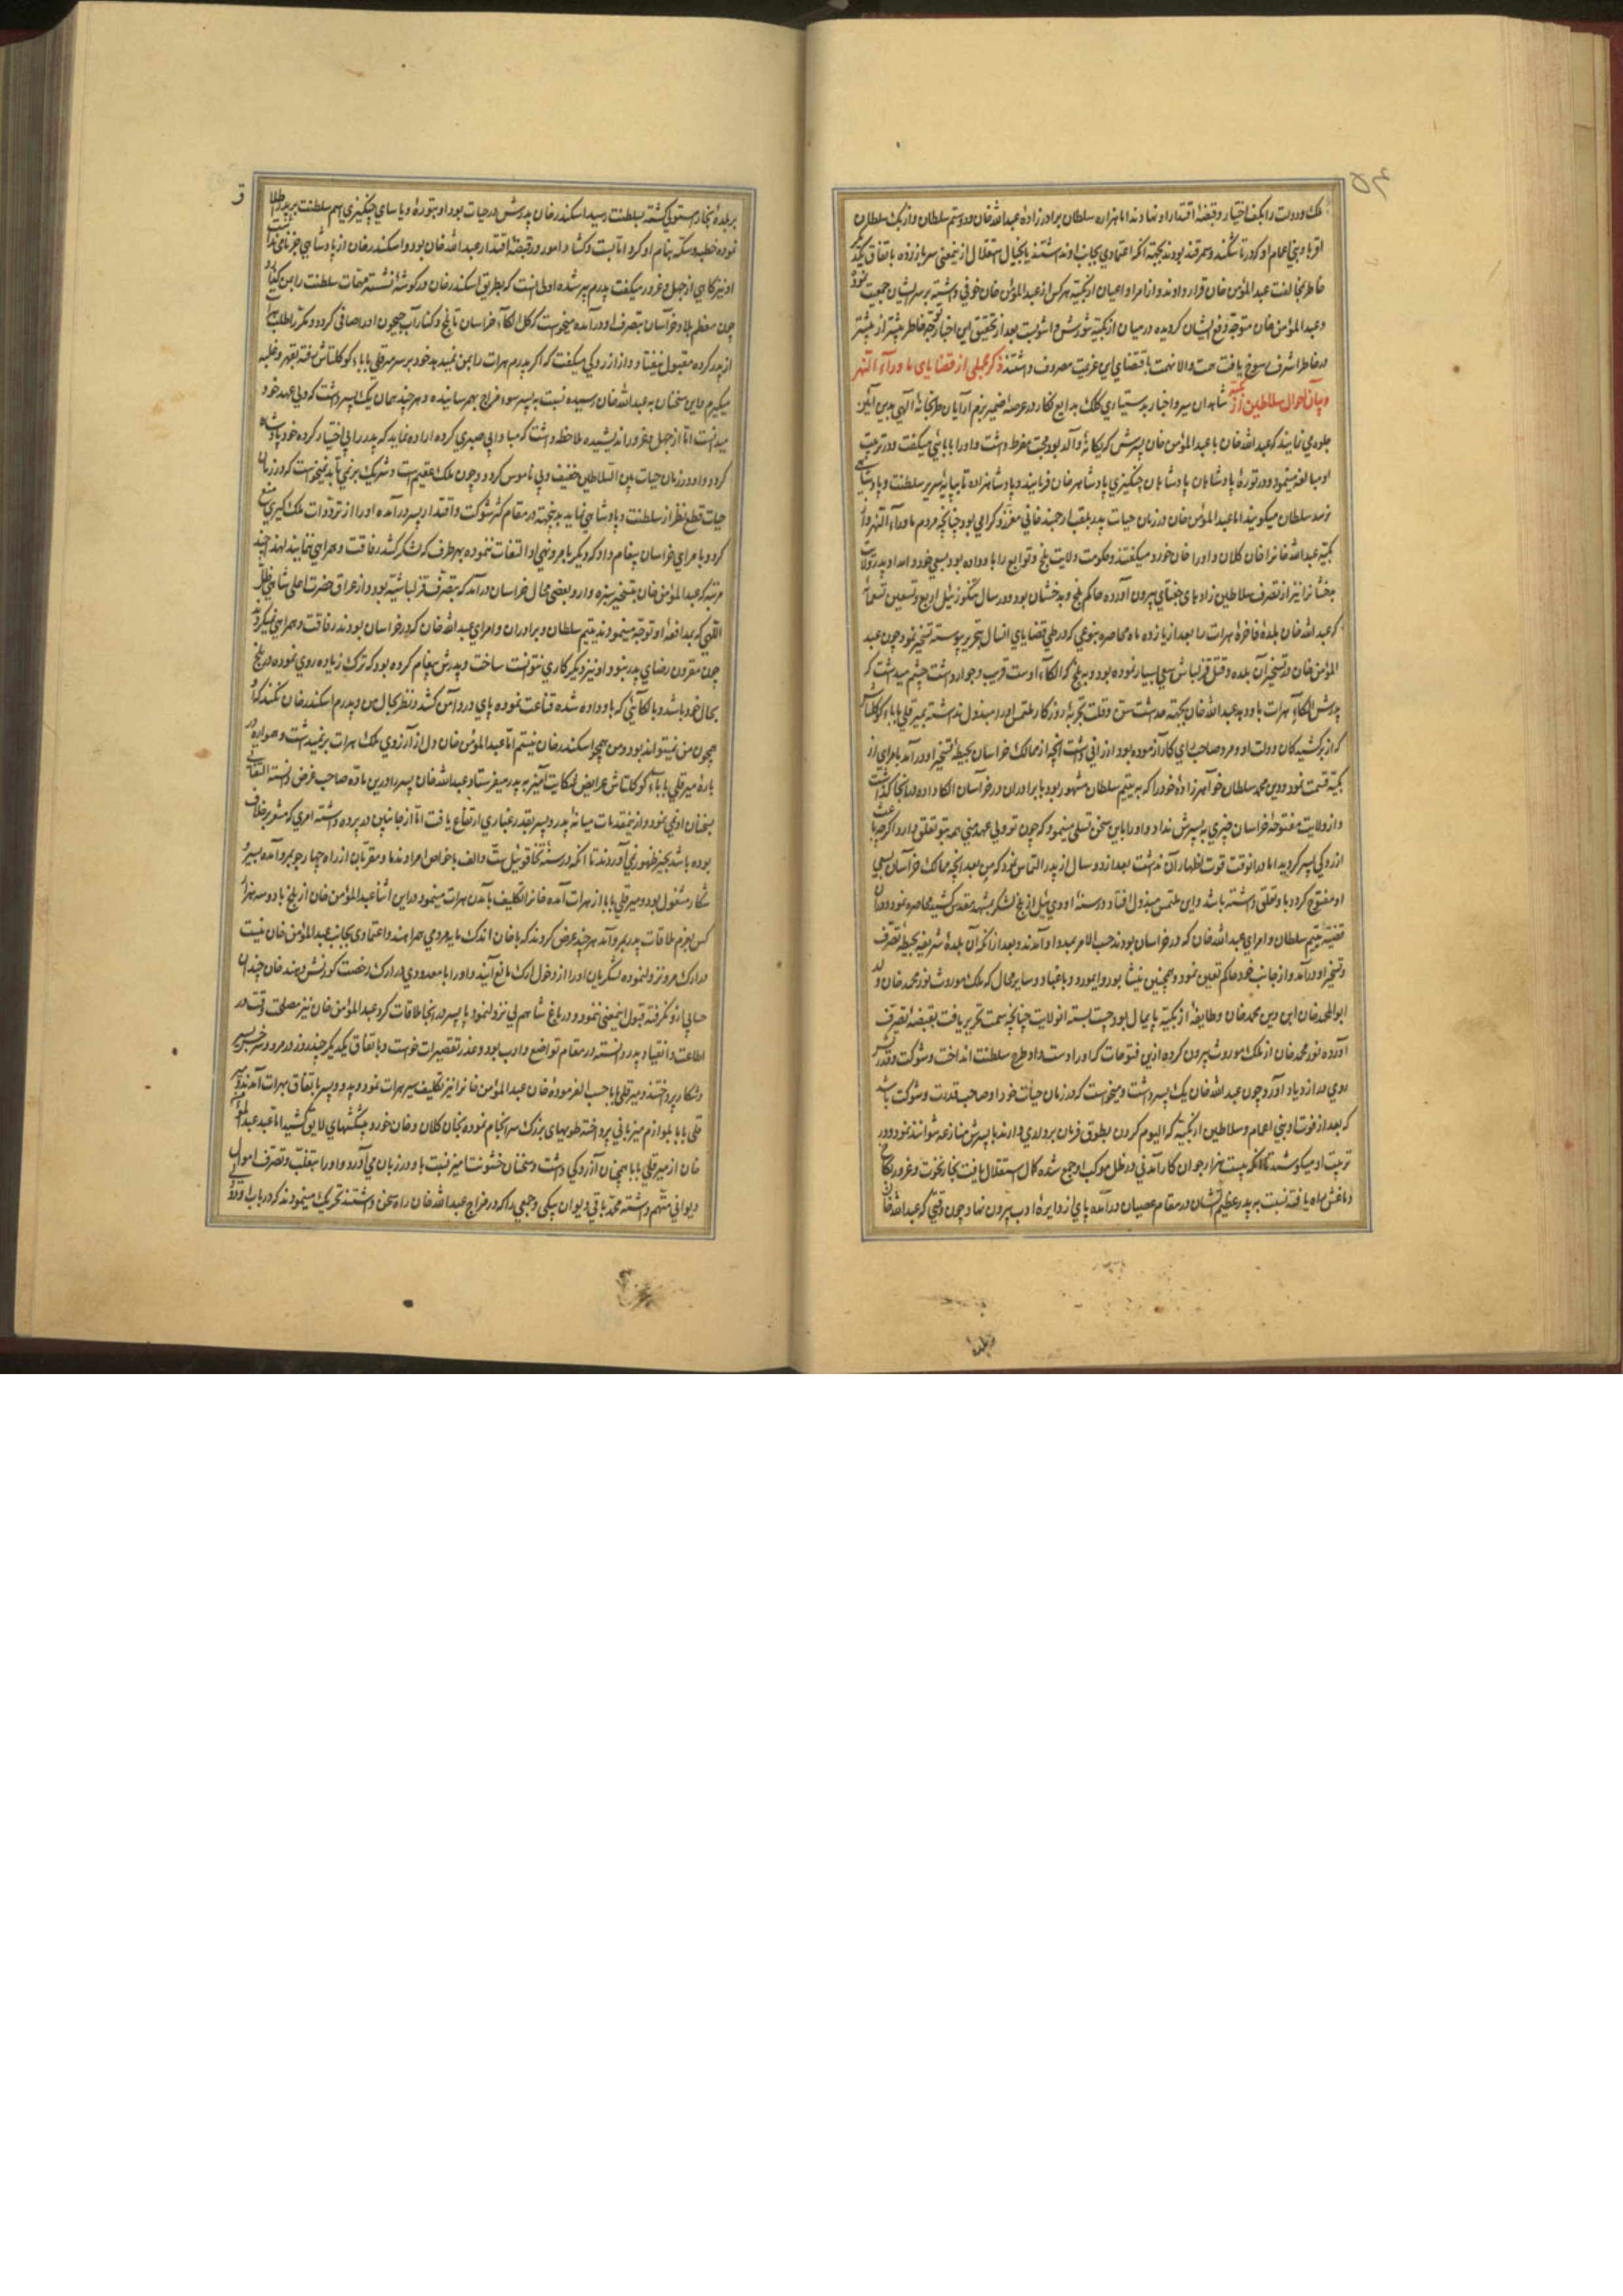 ملک و دولت را بکف اختیار و قبضهٔ اقتدار او نهادند اما هزاره سلطان برادرزادهٔ عبدالله خان و دوستم سلطان و ازبک سلطان
اقربا و بنی اعمام او که در تاشکند و سمرقند بودند بجهة آنکه اعتمادی بجانب او نداشتند یا بخیال استقلال ازین معنی سر باز زده باتفاق یکدیگر
خاطر بمخالفت عبدالمؤمن خان قرار دادند و از امرا و اعیان ازبکیه هرکس از عبدالمؤمن خان خوفی داشت بر سر ایشان جمعیت نمود
و عبدالمؤمن خان متوجه دفع ایشان گردیده در میان ازبکیه شورش و آشوبست بعد از تحقیق این اخبار توجه خاطر بیشتر از پیشتر
در خاطر اشرف رسوخ یافت همت والا نهمت باقتضای این عزیمت مصروف داشتند ذکر مجملی از قضایای ماوراء النهر
و بیان احوال سلاطین ازبکیه شاهدان سیر و اخبار بدستیاری کلک بدایع نگار در عرصهٔ ضمیر بزم آرایان طربخانهٔ آگهی بدین آئین
جلوه می نمایند که عبدالله خان با عبدالمؤمن خان پسرش که یگانهٔ والد بود محبت مفرط داشت و او را بابائی میگفت و در تربیت
او مبالغه مینمود و در تورهٔ پادشاهان چنگیزی پادشاه را خان فرمایند و پادشاهزاده تا بپایهٔ سریر سلطنت و پادشاهی
نرسد سلطان میگویند اما عبدالمؤمن خان در زمان حیات پدر بلقب ارجمند خانی معزز و گرامی بود چنانچه مردم ماوراء النهر و
ازبکیه عبدالله خان را خان کلان و او را خان خورد میگفتند و حکومت ولایت بلخ و توابع را باو داده بود بسعی خود و امداد پدر ولایت
بدخشان را نیز از تصرف سلاطین زادهای جغتای بیرون آورده حاکم بلخ و بدخشان بود و در سال تنگوزئیل اربع و تسعین و تسعمائه
که عبدالله خان بلدهٔ فاخرهٔ هرات را بعد از یازده ماه محاصره بنوعی که در طی قضایای آنسال بتحریر پیوسته تسخیر نمود چون عبد
المؤمن خان در تسخیر آن بلده و قتل قزلباش سعی بسیار نموده بود و بلخ که الکاء اوست قریب و جوار داشت چشم میداشت که
پدرش الکاء هرات باو دهد عبدالله خان بجهة حداثت سن و قلت تجربهٔ روزگار ملتمس او را مبذول نداشته بمیر قلی بابا کوکلتاش
که از برکشیدگان دولت او و مرد صاحب رای کارآزموده بود ارزانی داشت آنچه از ممالک خراسان بحیطهٔ تسخیر او درآمد بامرای
ازبکیه قسمت نمود و دین محمد سلطان خواهرزادهٔ خود را که به یتیم سلطان مشهور بود با برادران در خراسان الکا داده در آنجا گذاشت
و از ولایت مفتوحهٔ خراسان چیزی به پسرش نداد و او را باین سخن تسلی مینمود که چون تو ولی عهد منی همه بتو تعلق دارد اگرچه باعث
آزردگی پسر گردید اما در آنوقت قوت اظهار آن نداشت بعد از دو سال از پدر التماس نمود که من بعد آنچه ممالک خراسان بسعی
او مفتوح گردد باو تعلق داشته باشد و این ملتمس مبذول افتاد و در سنهٔ اودئیل از بلخ لشکر بمشهد مقدس کشیده محاصره نمود و در آن
قضیه یتیم سلطان و امرای عبدالله خان که در خراسان بودند حسب الامر بمدد او آمدند و بعد از آنکه آن بلدهٔ شریفه بحیطهٔ تصرف
و تسخیر او درآمد و از جانب خود حاکم تعیین نمود و همچنین نیشابور و ابیورد و باغباد و سایر محال که ملک موروث نور محمد خان ولد
ابوالمحمد خان ابن دین محمد خان و طایفهٔ ازبکیه پایمال بود چست بسته آن ولایت چنانچه سمت تحریر یافت بقبضهٔ تصرف
آورده نور محمد خان از ملک موروث بیرون کرده ازین فتوحات که او را دست داد طرح سلطنت انداخت و شوکت و قدرتش
روی در ازدیاد آورد چون عبدالله خان یک پسر داشت و میخواست که در زمان حیات خود او صاحب قدرت و شوکت باشد
که بعد از فوت او بنی اعمام و سلاطین ازبکیه که الیوم گردن بطوق فرمان برداری دارند با پسرش منازعه نتوانند نمود و در
تربیت او میکوشید تا آنکه بیست هزار جوان کارآمدنی در ظل موکب او جمع شده کمال استقلال یافت بخار نخوت و غرور بکاخ
دماغش راه یافته نسبت به پدر عظیم الشان در مقام عصیان درآمده پای از دایرهٔ ادب بیرون نهاد چون وقتی که عبدالله خان
بر بلدهٔ بخارا مستولی گشته بسلطنت رسید اسکندر خان پدرش در حیات بود او بتوره و یاسای چنگیزی اسم سلطنت بر پدر اطلاق
نموده خطبه و سکه بنام او کرد اما بست و گشاد امور در قبضهٔ اقتدار عبدالله خان بود و اسکندر خان از پادشاهی جز نامی نداشت
او نیز گاهی از جهل و غرور میگفت پدرم پیر شده اولی آنست که بطریق اسکندر خان در گوشهٔ نشسته مهمات سلطنت را بمن گذارد
چون معظم بلاد خراسان بتصرف او درآمده میخواست که کل الکاء خراسان تا بلخ و کنار آب جیحون او را صافی گردد و مکرر اطلب هرات
از پدر کرده مقبول نیفتاد و از آزردگی میگفت که اگر پدرم هرات را بمن نمیدهد خود بر سر میر قلی بابا کوکلتاش رفته بقهر و غلبه
میگیرم و این سخنان به عبدالله خان رسیده نسبت به پسر سوء مزاج بهم رسانیده و هرچند همان یک پسر داشت که ولی عهد خود
میدانست اما از جهل و غرور اندیشیده ملاحظه داشت که مبادا بی صبری کرده اراده نماید که پدر را بی اختیار کرده خود پادشاه
گردد و او در زمان حیات بین السلاطین خفیف و بی ناموس گردد و چون ملک عقیم است و شریک برنمی تابد نمیخواست که در زمان
حیات قطع نظر از سلطنت و پادشاهی نماید بدینجهة در مقام کسر شوکت و اقتدار پسر درآمده او را از ترددات ملک گیری منع
کرد و بامرای خراسان پیغام داد که دیگر بامر و نهی او التفات ننموده بهر طرف که لشکر کشد رفاقت و همراهی ننمایند لهذا چند
مرتبه که عبدالمؤمن خان بتسخیر سبزوار و بعضی محال خراسان درآمد که بتصرف قزلباشیه بود و از عراق حضرت اعلی شاهی ظل
اللهی که بمدافعهٔ او توجه مینمودند یتیم سلطان و برادران و امرای عبدالله خان که در خراسان بودند رفاقت و همراهی نمیکردند
چون مقرون رضای پدر نبود او نیز دیگر کاری نتوانست ساخت و پدرش پیغام کرده بود که ترک زیاده روی نموده در بلخ
بحال خود باشد و بالکائی که باو داده شده قناعت نموده پای در دامن کشد و نظر بحال من و پدرم اسکندر خان نکند که او
همچون من نمیتواند بود و من همچو اسکندر خان نیستم اما عبدالمؤمن خان دل از آرزوی ملک هرات برنمیداشت و همواره در
بارهٔ میر قلی بابای کوکلتاش عرایض شکایت آمیز به پدر میفرستاد عبدالله خان پسر را درین ماده صاحب غرض دانسته التفاتی
بسخنان او نمی نمود و ازین مقدمات میانهٔ پدر و پسر بقدر غباری ارتفاع یافت اما از جانبین در پرده داشته امری که مشعر بر خلاف
بوده باشد بحیز ظهور نمی آوردند تا آنکه در سنهٔ تخاقوئیل ست و الف با خواص امرا و ندما و مقربان از راه چهارجو بمرو آمده بسیر و
شکار مشغول بود و میر قلی بابا از هرات آمده خان را تکلیف بآمدن هرات مینمود در این اثنا عبدالمؤمن خان از بلخ با دو سه هزار
کس بعزم ملاقات پدر بمرو آمد هرچند عرض کردند که با خان اندک مایه مردمی همراهند و اعتمادی بجانب عبدالمؤمن خان نیست
در ارک مرو نزول نموده لشکریان او را از دخول ارک مانع آیند و او را با معدودی در ارک رخصت کورنش دهند خان چندان
حسابی ازو نگرفته قبول اینمعنی ننمود و در باغ شاهم بی نزول نمود با پسر در آنجا ملاقات کرد عبدالمؤمن خان نیز مصلحت وقت در
اطاعت و انقیاد پدر دانسته در مقام تواضع و ادب بود و عذر تقصیرات خواست و باتفاق یکدیگر چند روز در مرو و سرخس بسیر
و شکار پرداختند و میر قلی بابا حسب الفرمودهٔ خان عبدالمؤمن خان را نیز تکلیف سیر هرات نمود و پدر و پسر باتفاق بهرات آمدند و میر
قلی بابا بلوازم میزبانی پرداخته طویهای بزرگ سرانجام نموده بخان کلان و خان خورد پیشکشهای لایق کشید اما عبدالمؤمن
خان از میر قلی بابا همچنان آزردگی داشت و سخنان خشونت آمیز نسبت باو در زبان می آورد و او را بتغلب و تصرف اموال
دیوانی متهم داشته محمد باقی دیوان بیگی و جمعی را که در مزاج عبدالله خان راه سخن داشتند تحریک مینمودند که در باب او